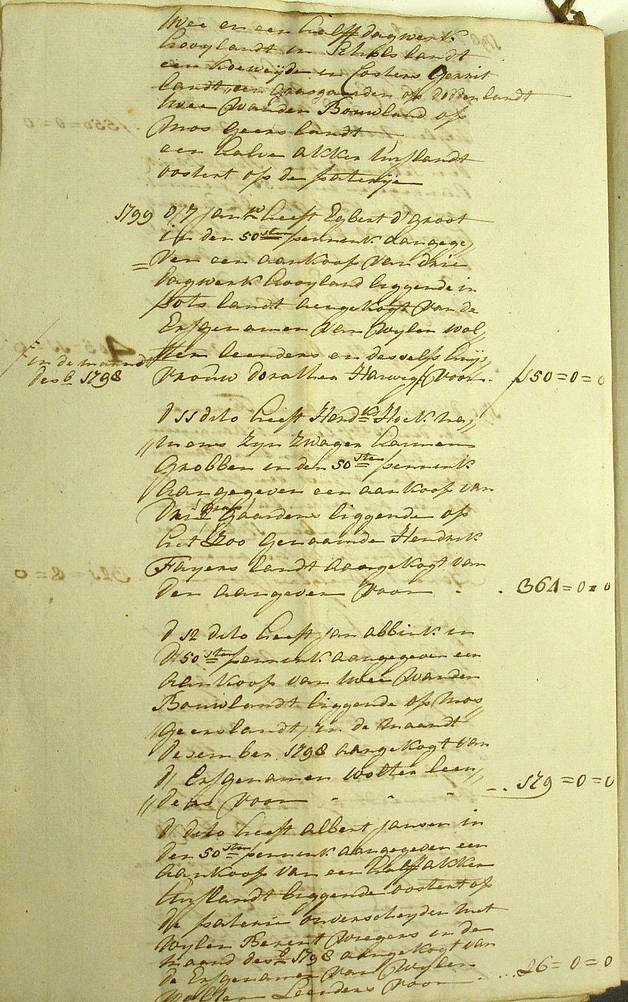 twee en een half dagwerk
hooylandt in Schults landt
een koeweyde in Costers Gerrit
landt, een gaarden op Dodden landt
twee Wanden Bouwland op
Mos Geers landt
een halve akker turflandt
oostert op de paterije
1799 d 7 Jan heeft Egbert d' Groot
in den 50sten penninck aangege,,
ven een aankoop van drie
dagwerk hooyland liggende in
landt aengekogt van de
Erfgenamen van Wylen Wol,,
ter leenders en desselfs huis
in de maandt
dec 1798
vrouw Dorathea Harwegh voor f150=0=0
d 11 dito heeft Hend Hoek na,,
mens zyn zwager Harmen
Grobben in den 50sten penninck
aangegeven een aankoop van
Gaarden liggende op
het Loo genaamde Hendrik
Fayers landt aangekogt van
den aangever voor 364=0=0
d 12 dito heeft Jan abbink in
d 50sten penninck aangegeven een
aankoop van twee Wanden
Bouwlandt liggende op Mos
Geerslandt, in de Maandt
December 1798 aangekogt van
d' Erfgenamen Wolter leen,,
ders voor 179=0=0
d dito heeft albert Jansen in
den 50sten penninck aangegeven een
aankoop van een half akker
turflandt liggende oostert op
de paterie onverscheyden met
Wylen Berent Wregers in de
maand dec 1798 aangekogt van
de Erfgenamen van Wylen
Wolter Leenders voor 26=0=0